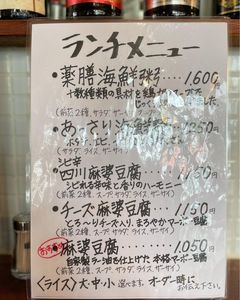 ランチメニュー
・薬膳海鮮粥････1,600
十数種類の具材を鶏が
じっく
(前菜2種、サラダ、ザーサイ
・あっさり海鮮 1,250
ホタテ、エビ、
(サラダ、ライス、ザーサイ)
シビ辛
・四川麻婆豆腐････1,150
シビれる辛味と香りのハーモニー
(前菜2種、スープ、サラダ、ライス、ザーサイ)
・チーズ麻婆豆腐･･･1,150
とろ〜りチーズ入り、まろやかマーボー豆腐
(前菜2種、スープ、サラダ、ライス、ザーサイ)
麻婆豆腐････1,050
自家製ラー油で仕上げた 本格マーボー豆腐
(前菜2種、スープ、サラダ、ライス、ザーサイ)
〈ライス〉大・中・小 選べます。オーダー時に
お伝え下さい。